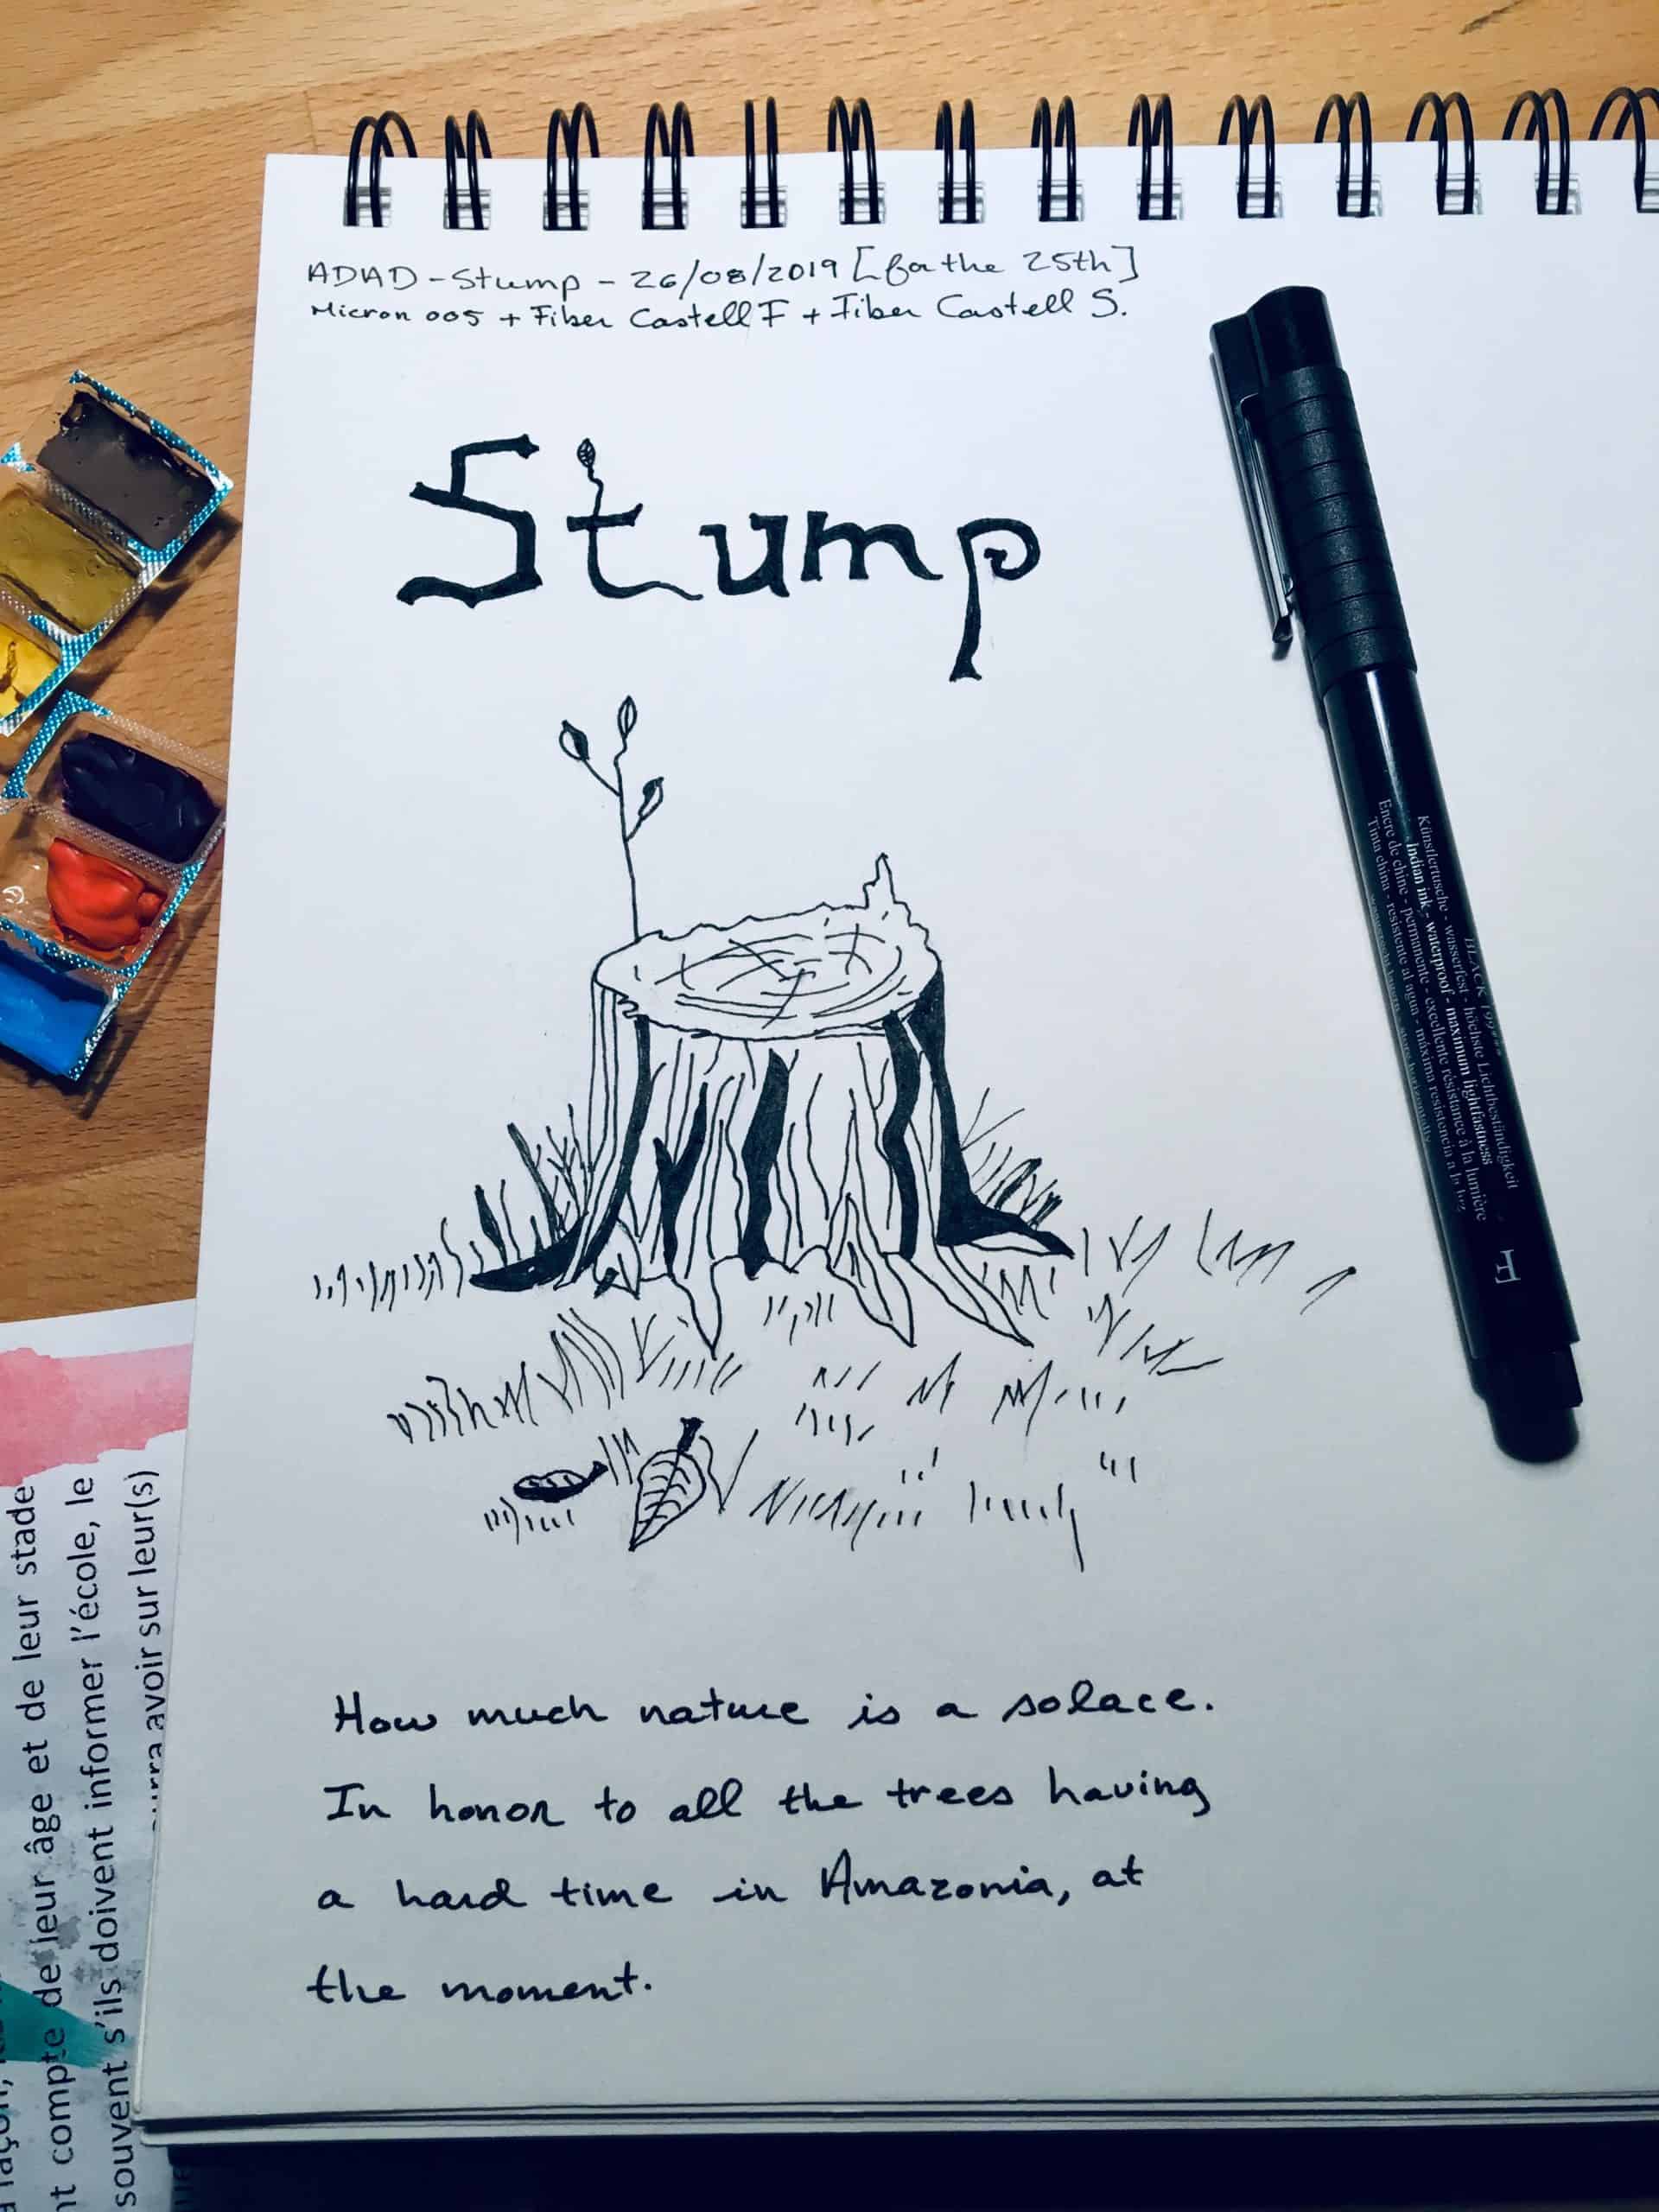 ADAD - Stump - 26/08/2019 [for the 25th]
Micron 005 + Fiber Castell F + Fiber Castell S.
Stump
How much nature is a solace.
In honor to all the trees having
a hard time in Amazonia, at
the moment.
BLACK 199
Künstlertusche - wasserfest - höchste Lichtbeständigkeit
Indian ink - waterproof - maximum lightfastness
Encre de chine - permanente - excellente résistance à la lumière
Tinta china - resistente al agua - máxima resistencia a la luz
F
compte de leur âge et de leur stade
souvent s'ils doivent informer l'école, le
avoir sur leur(s)